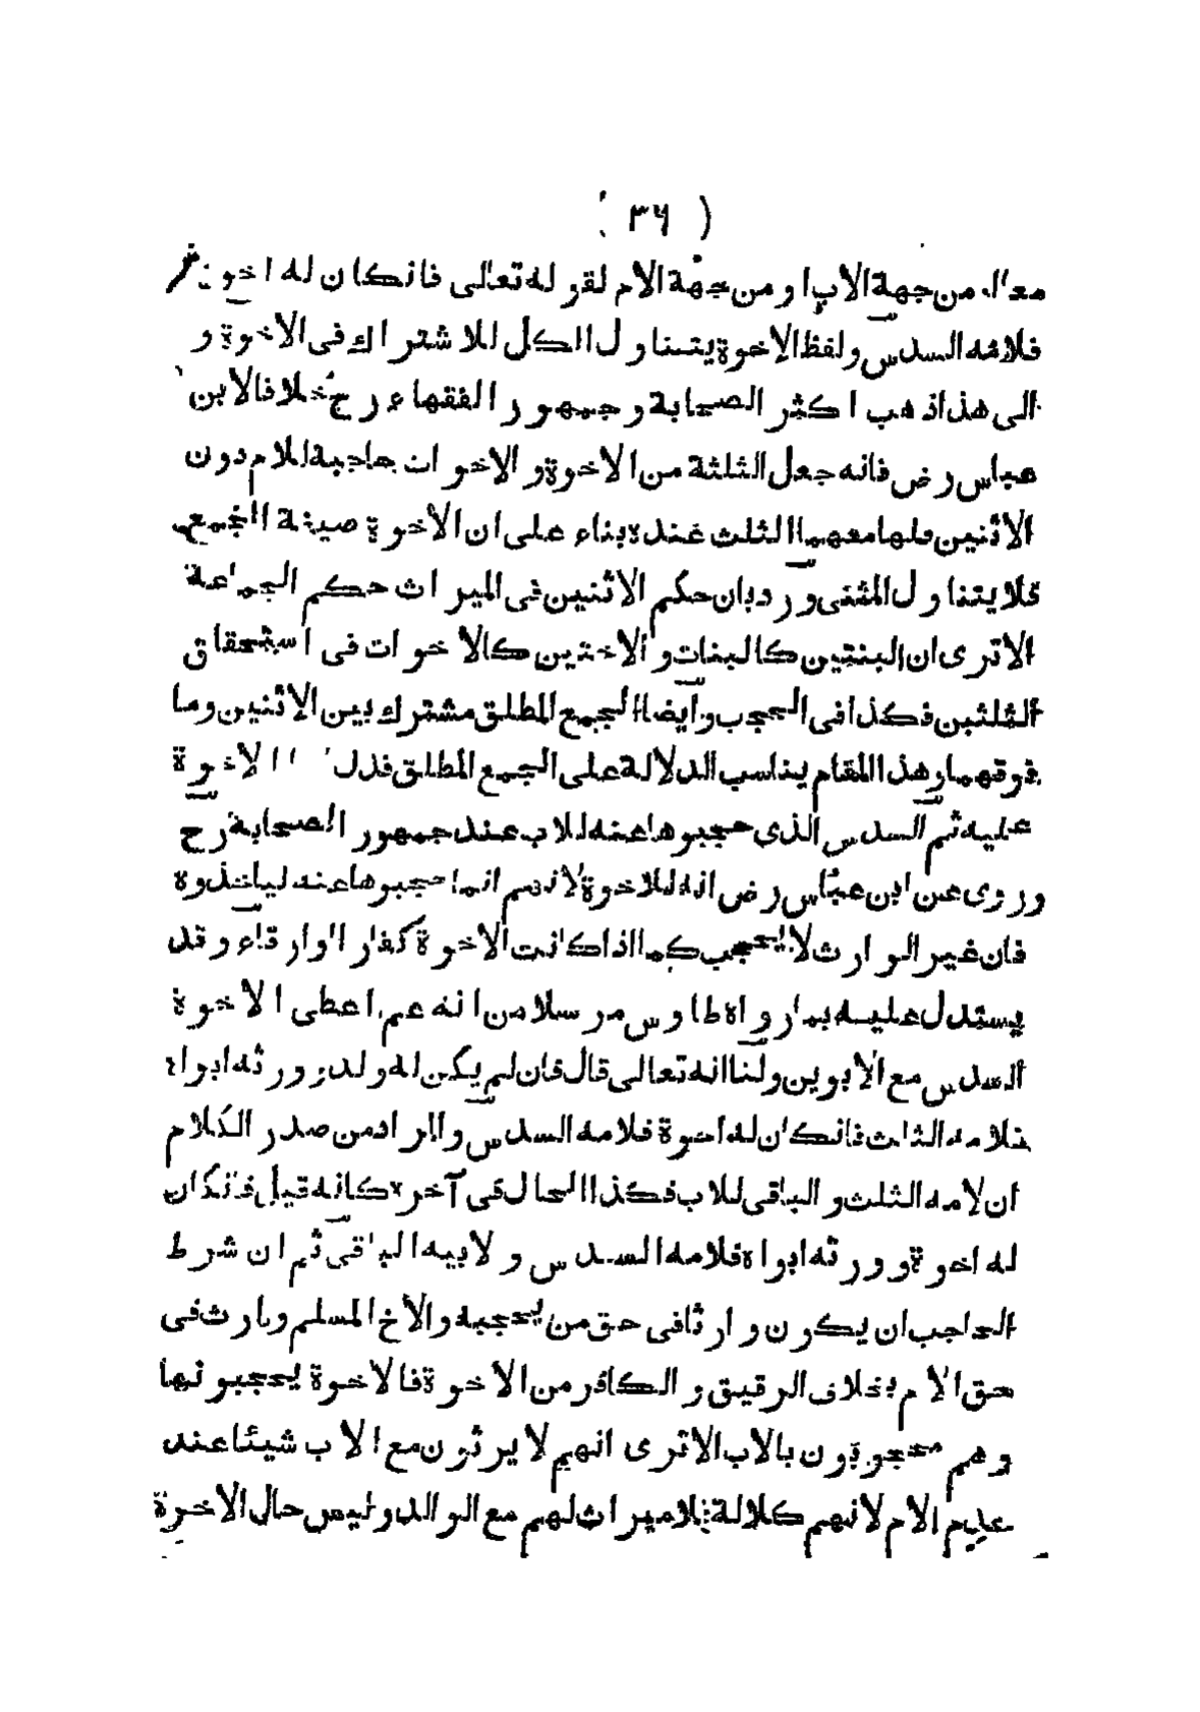 ( ٣٦ )
معا او من جهة الاب او من جهة الام لقوله تعالى فانكان له اخوة
فلامه السدس ولفظ الاخوة يتناول الكل للاشتراك فى الاخوة و
الى هذا ذهب اكثر الصحابة وجمهور الفقهاء رح خلافا لابن
عباس رض فانه جعل الثلثة من الاخوة والاخوات حاجبة للام دون
الاثنين فلها معهما الثلث عنده بناء على ان الاخوة صيغة الجمع
فلا يتناول المثنى ورد بان حكم الاثنين فى الميراث حكم الجماعة
الاترى ان البنتين كالبنات والاختين كالاخوات فى استحقاق
الثلثين فكذا فى الحجب وايضا الجمع المطلق مشترك بين الاثنين وما
فوقهما وهذا المقام يناسب الدلالة على الجمع المطلق فدل الاخوة
عليه ثم السدس الذى حجبوها عنه للاب عند جمهور الصحابة رح
وروى عن ابن عباس رض انه للاخوة لانهم انما حجبوها عنه لياخذوه
فان غير الوارث لا يحجب كما اذا كانت الاخوة كفارا او ارقاء وقد
يستدل عليه بما رواه طاوس مرسلا من انه عم اعطى الاخوة
السدس مع الابوين ولنا انه تعالى قال فان لم يكن له ولد وورثه ابواه
فلامه الثلث فانكان له اخوة فلامه السدس والمراد من صدر الكلام
ان لامه الثلث والباقى للاب فكذا الحال فى آخره كانه قيل فانكان
له اخوة وورثه ابواه فلامه السدس ولابيه الباقى ثم ان شرط
الحاجب ان يكون وارثا فى حق من يحجبه والاخ المسلم وارث فى
حق الام بخلاف الرقيق والكافر من الاخوة فالاخوة يحجبونها
وهم محجوبون بالاب الاترى انهم لا يرثون مع الاب شيئا عند
عدم الام لانهم كلالة فلا ميراث لهم مع الوالد وليس حال الاخوة